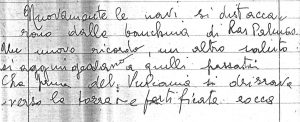 Nuovamente le navi si distacca,
rono dalla banchina di Las Palmas
Un nuovo ricordo, un altro saluto
si aggiungevano a quelli passati
Che prima del Vulcania si drizzava
verso la torran e fortificate rocca